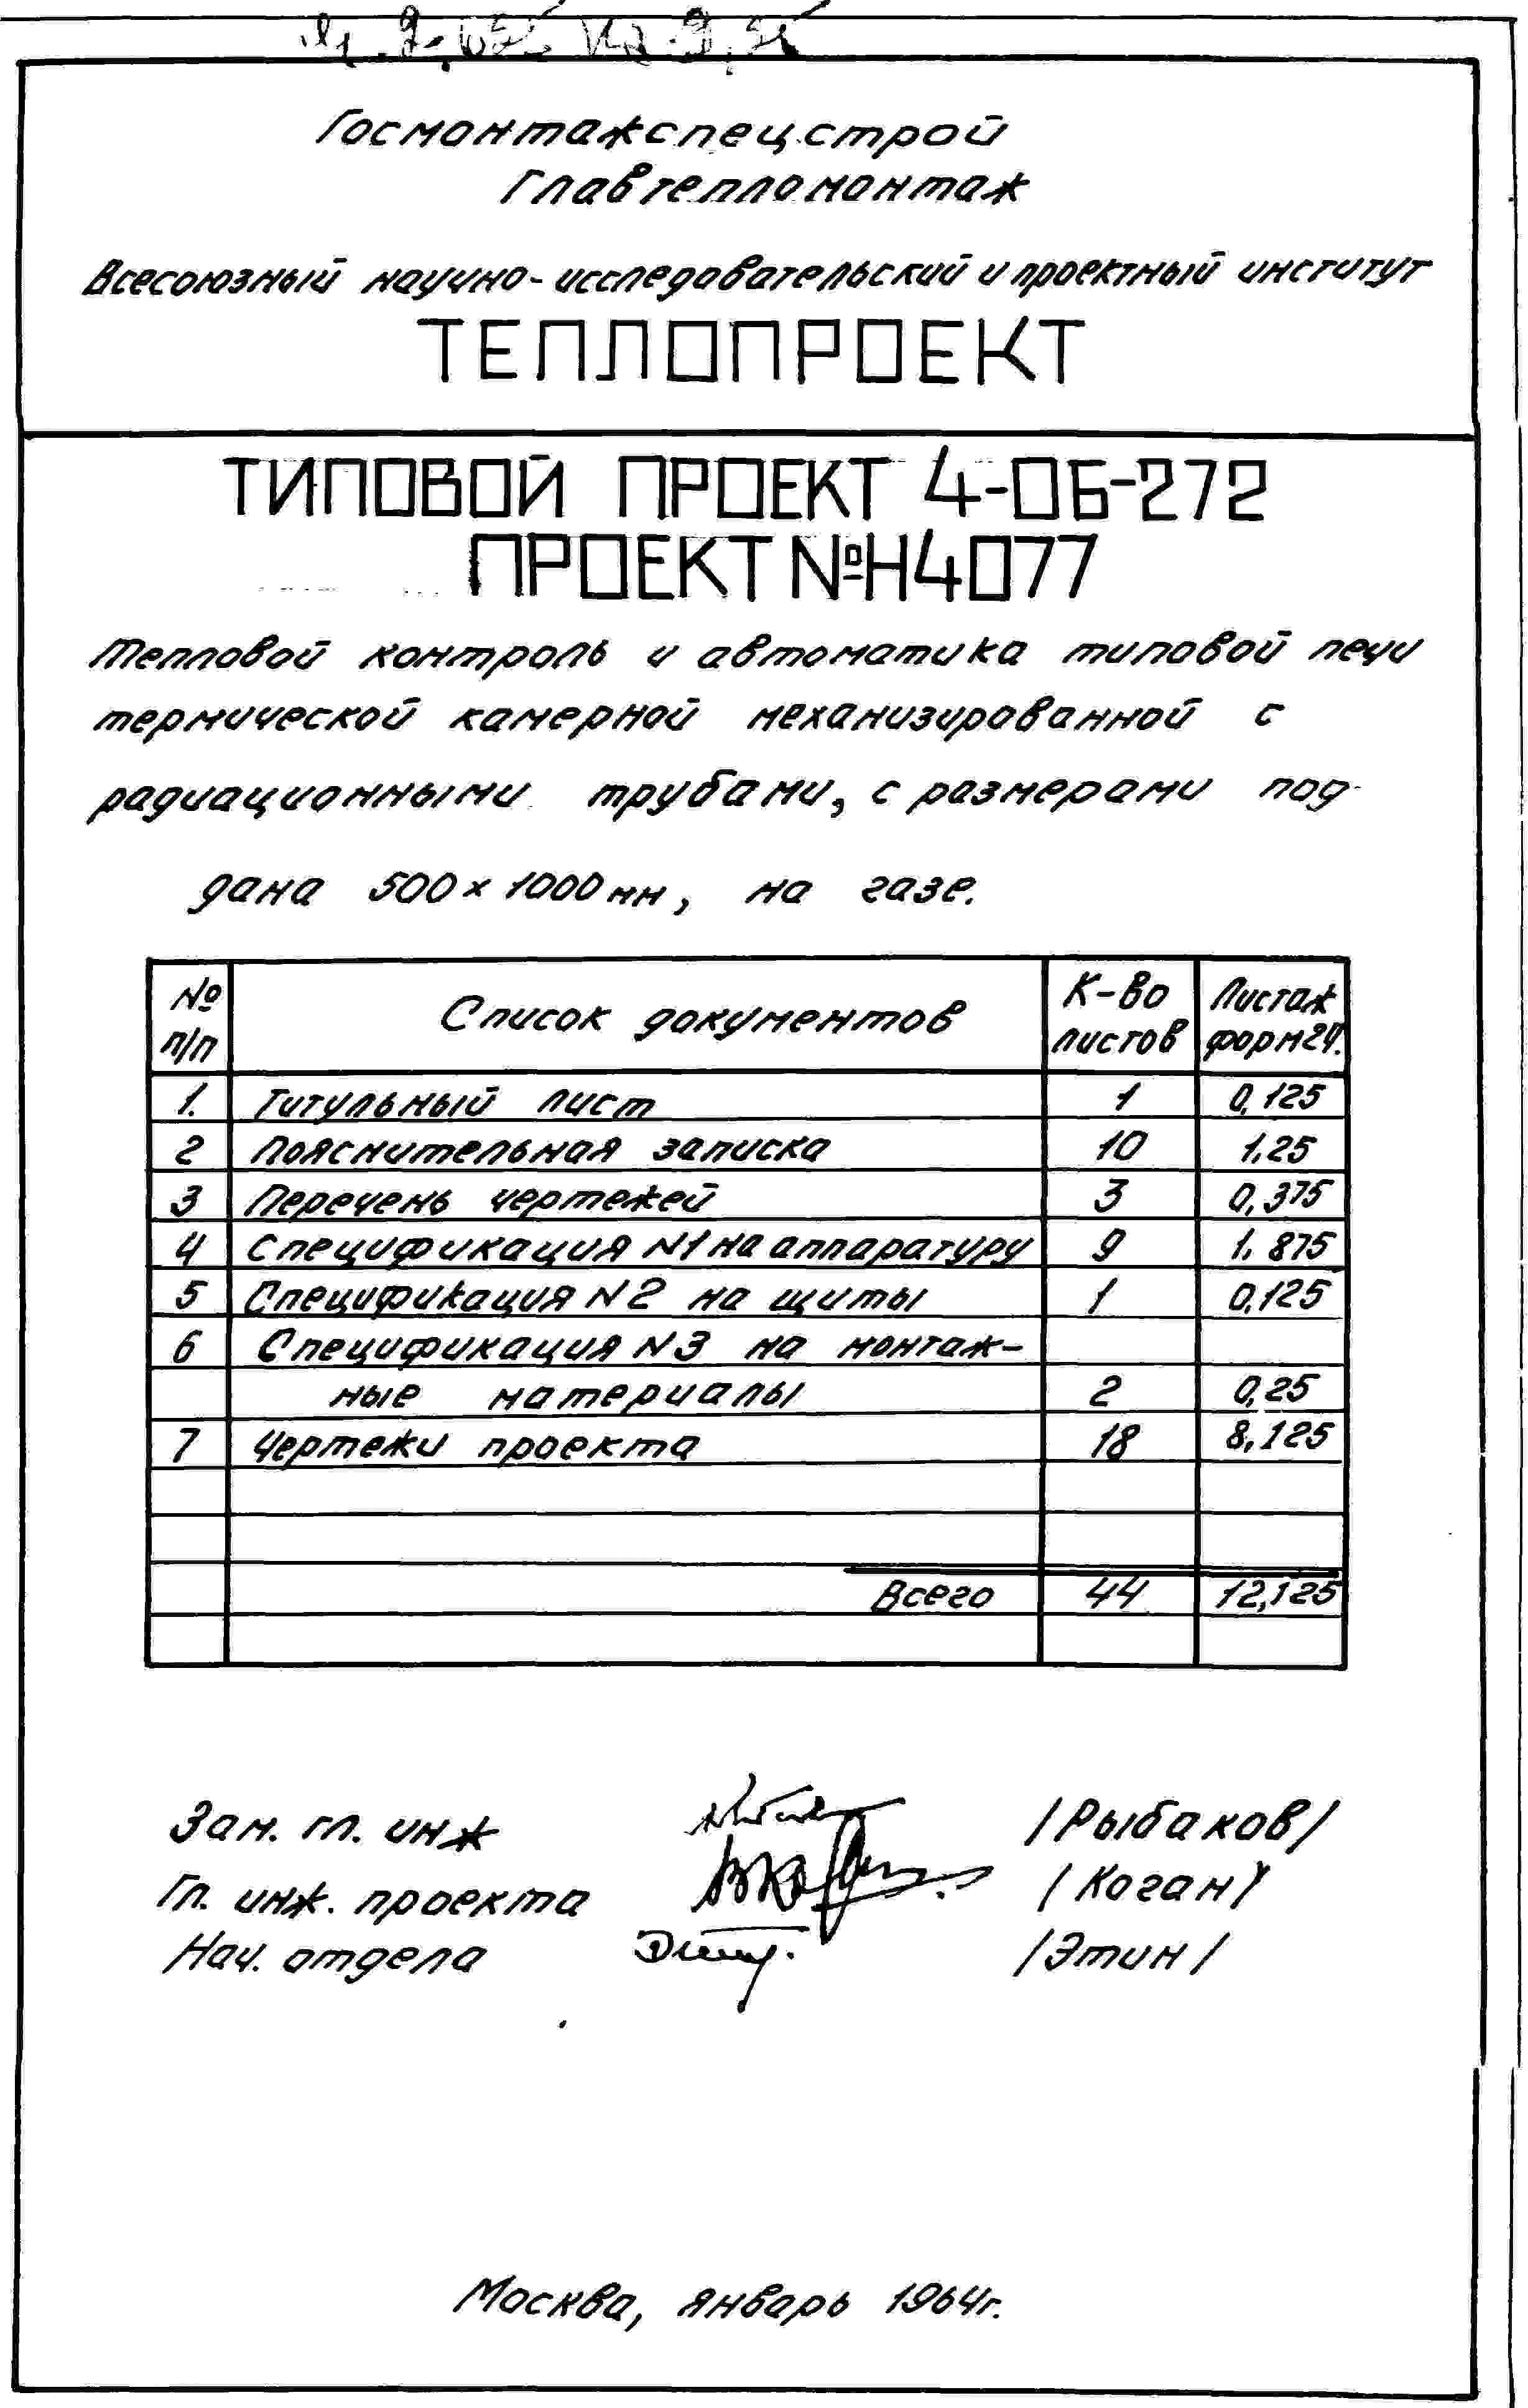 Госмонтажспецстрой
Главтепломонтаж
Всесоюзный научно-исследовательский и проектный институт
ТЕПЛОПРОЕКТ
ТИПОВОЙ ПРОЕКТ 4-ОБ-272
ПРОЕКТ №Н4077
Тепловой контроль и автоматика типовой печи
термической камерной механизированной с
радиационными трубами, с размерами под-
дана 500 х 1000 мм, на газе.
№ п/п Список документов К-во листов Листаж форм 24.
1. Титульный лист 1 0,125
2 Пояснительная записка 10 1,25
3 Перечень чертежей 3 0,375
4 Спецификация N1 на аппаратуру 9 1.875
5 Спецификация N2 на щиты 1 0,125
6 Спецификация N3 на монтаж-
ные материалы 2 0,25
7 Чертежи проекта 18 8,125
Всего 44 12,125
Зам. гл. инж /Рыбаков/
Гл. инж. проекта /Коган/
Нач. отдела /Этин/
Москва, январь 1964г.